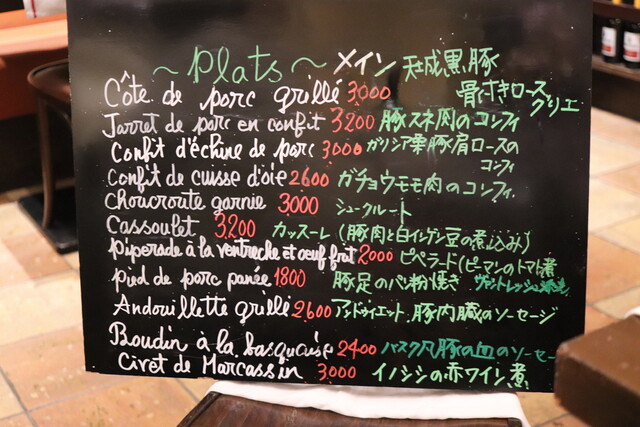 ~ Plats ~ メイン 天城黒豚
Côte de porc grillé 3000 骨付きロース
グリエ
Jarret de porc en confit 3200 豚スネ肉のコンフィ
Confit d'échine de porc 3000 ガリシア栗豚肩ロースの
コンフィ
Confit de cuisse d'oie 2600 ガチョウモモ肉のコンフィ
Choucroute garnie 3000 シュークルート
Cassoulet 3200 カッスーレ (豚肉と白インゲン豆の煮込み)
Piperade à la ventreche et oeuf frit 2000 ピペラード (ピーマンのトマト煮
pied de porc panée 1800 豚足のパン粉焼き ヴァントレッシュ
Andouillette grillé 2600 アンドゥイエット 豚内臓のソーセージ
Boudin à la basquaise 2400 バスク風豚の血のソーセー
Civet de Marcassin 3,000 イノシシの赤ワイン煮